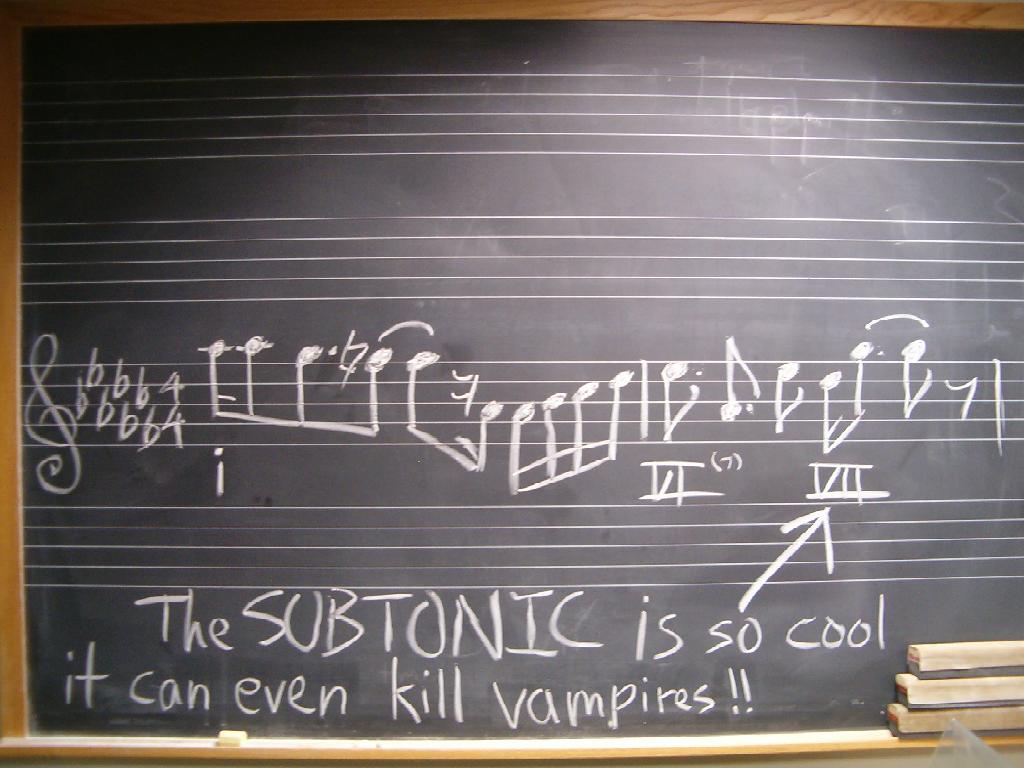 4
4
i VI(7) VII
The SUBTONIC is so cool
it can even kill vampires!!